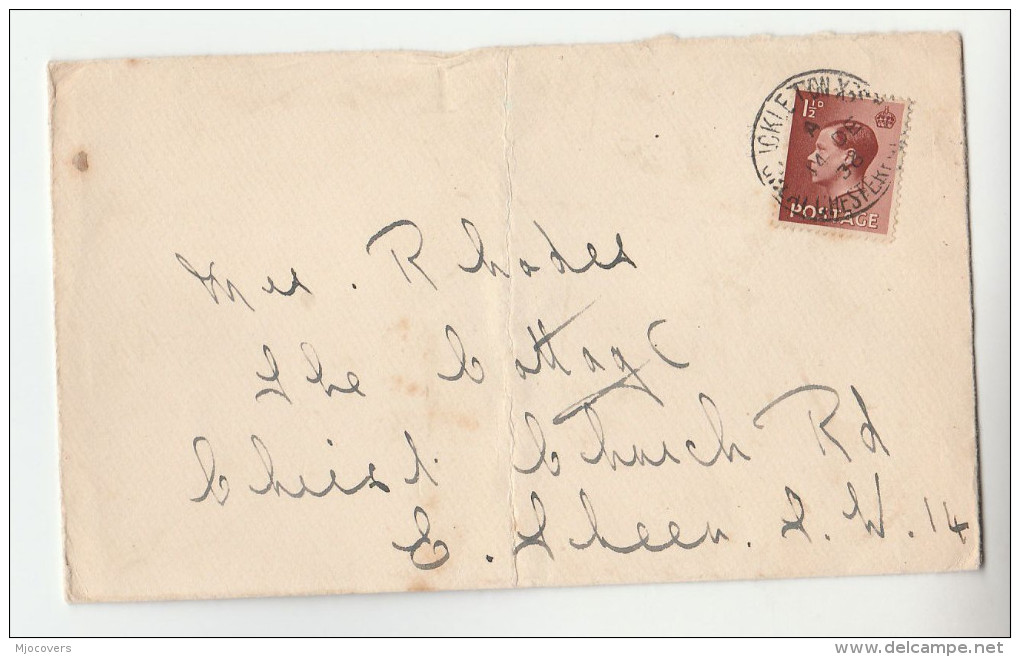 1½D
A
14 DE
36
POSTAGE
Mrs. Rhodes
The Cottage
Christ Church Rd
E. Sheen. S.W.14
Mjocovers
www.delcampe.net